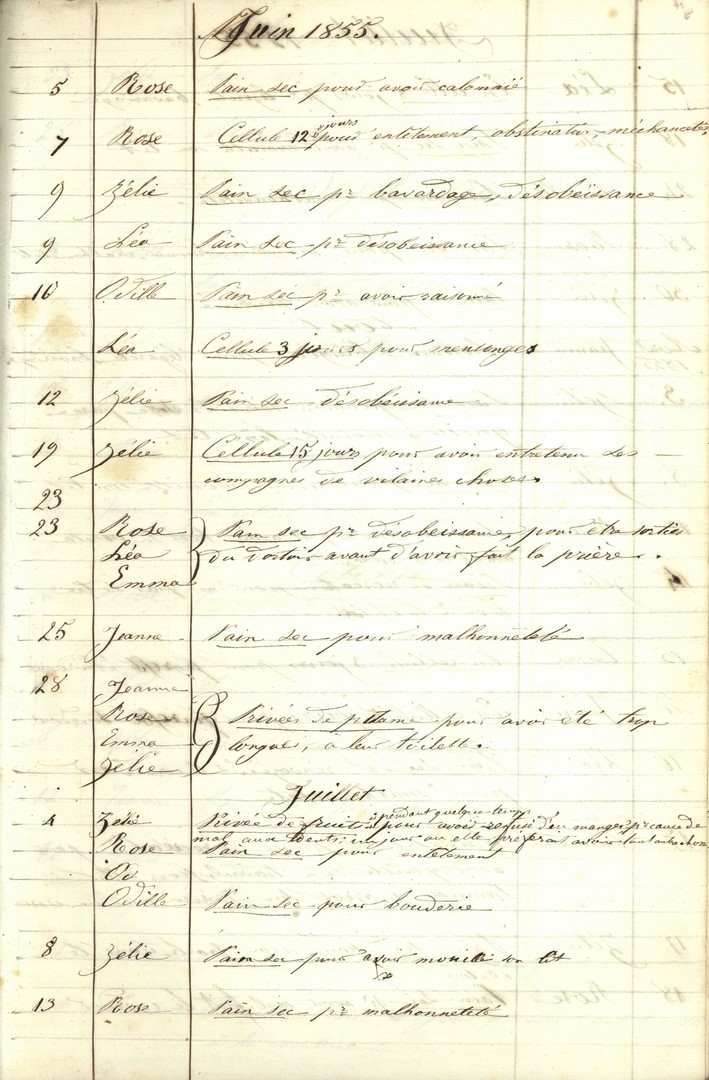 Juin 1855.
5 Rose Pain sec pour avoir calomnié
7 Rose Cellule 12 jours pour entêtement, obstination, méchanceté,
9 Zélie Pain sec pr bavardage, désobéissance
9 Léa Pain sec pr désobeissance
10 Odille Pain sec pr avoir raisonné
Léa Cellule 3 jours pour mensonges
12 Zélie Pain sec désobéissance
19 Zélie Cellule 15 jours pour avoir entretenu ses
compagnes de vilaines choses.
23
23 Rose Pain sec pr désobeissance, pour etre sorties
Léa du dortoir avant d'avoir fait la prière.
Emma
25 Jeanne Pain sec pour malhonnêteté
28 Jeanne
Rose Privées de pour avoir été trop
Emma longues, à leur toilette.
Zélie
Juillet
4 Zélie Privée de fruits pendant quelque temps pour avoir refusé d'en manger pr cause de
mal aux dents, un jour ou elle préférait avoir tout autre chose
Rose Pain sec pour entetement
Od
Odille Pain sec pour bouderie
8 Zélie Pain sec pour avoir mouillé son lit
13 Rose Pain sec pr malhonneteté